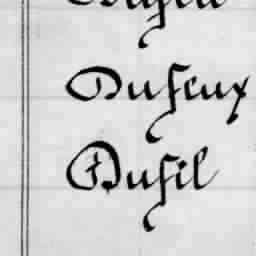 Dufeux
Dufil